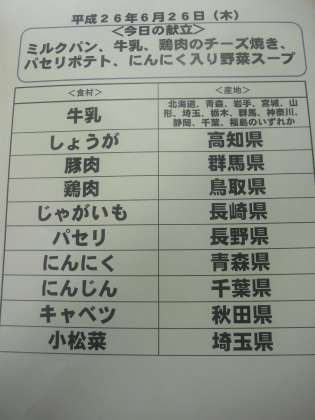 平成26年6月26日（木）
＜今日の献立＞
ミルクパン、牛乳、鶏肉のチーズ焼き、
パセリポテト、にんにく入り野菜スープ
＜食材＞ ＜産地＞
牛乳 北海道、青森、岩手、宮城、山
形、埼玉、栃木、群馬、神奈川、
静岡、千葉、福島のいずれか
しょうが 高知県
豚肉 群馬県
鶏肉 鳥取県
じゃがいも 長崎県
パセリ 長野県
にんにく 青森県
にんじん 千葉県
キャベツ 秋田県
小松菜 埼玉県